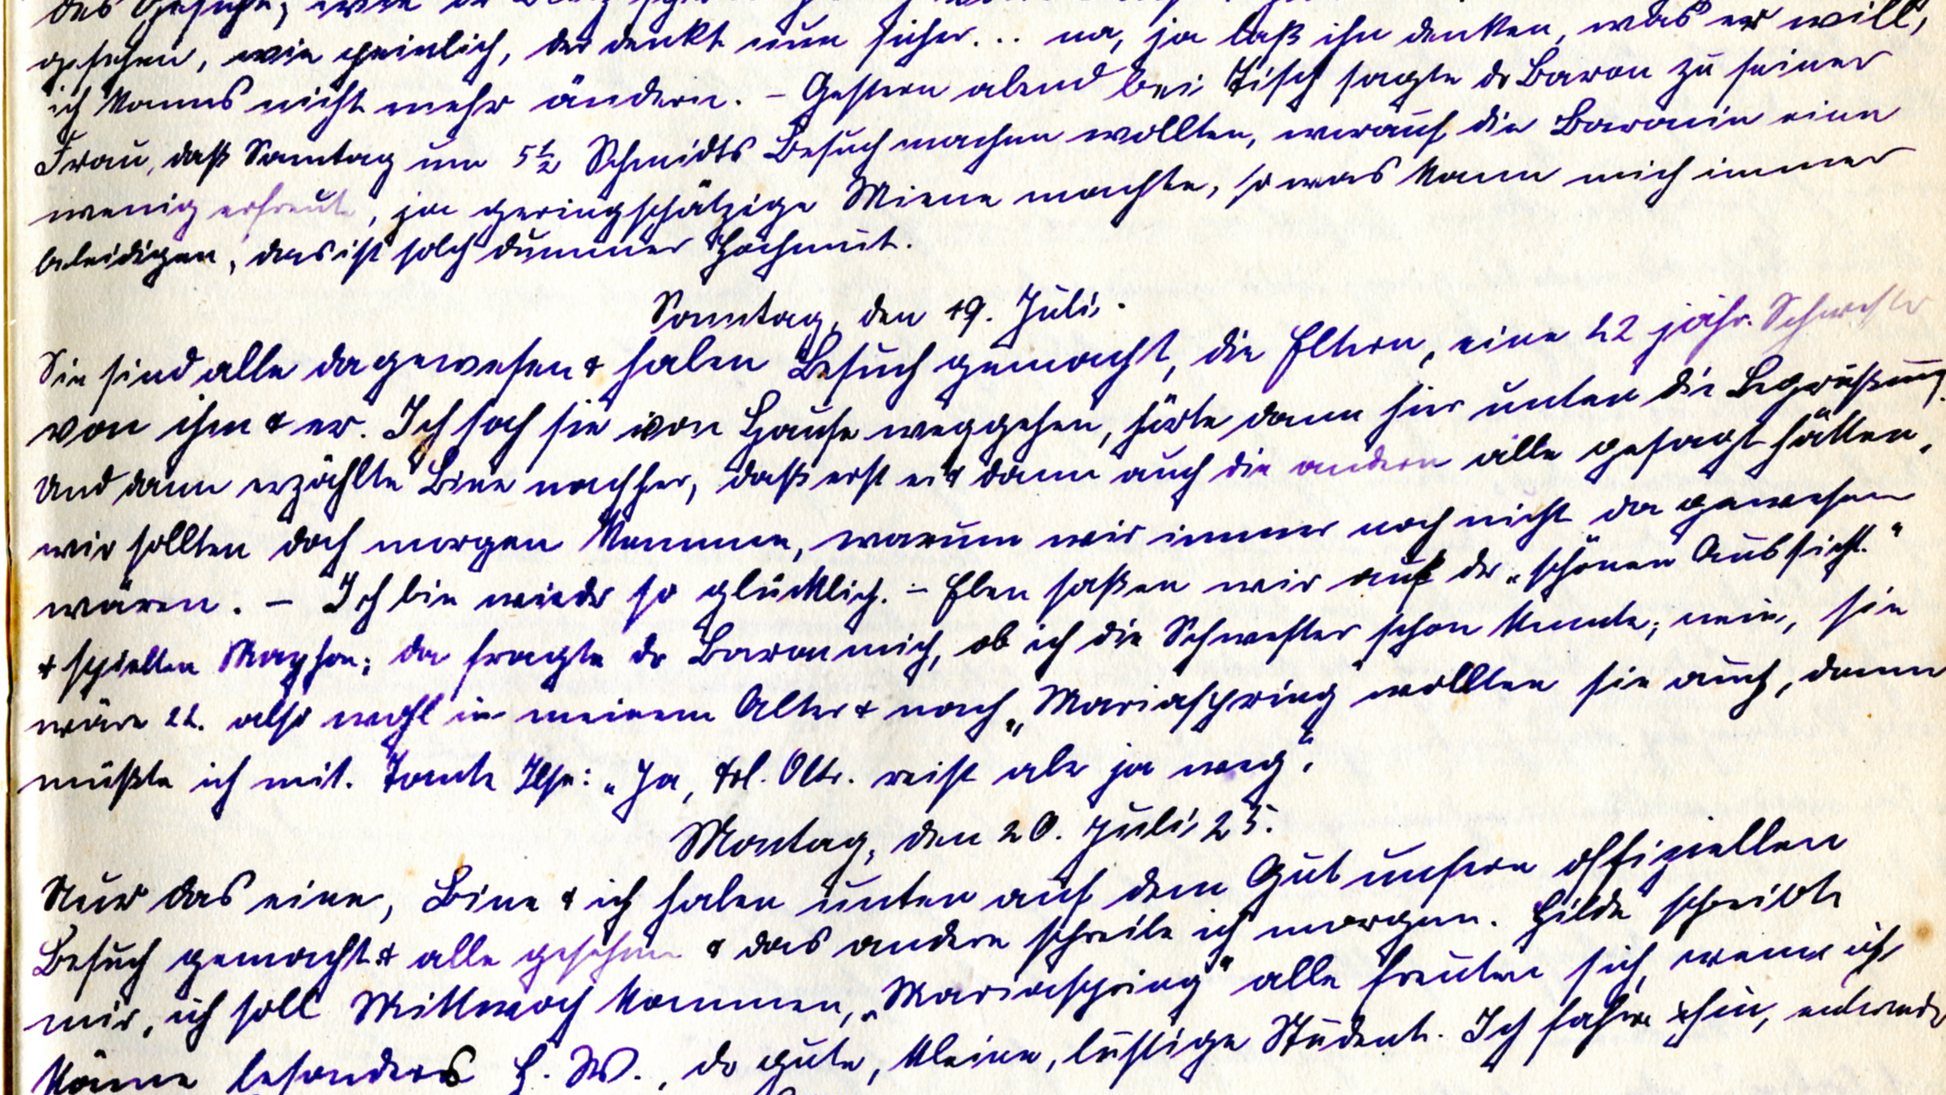 gesehen, wie peinlich, der denkt nun sicher... na, ja laß ihn denken, was er will,
ich kanns nicht mehr ändern. – Gestern abend bei Tisch sagte dr Baron zu seiner
Frau, daß Sonntag um 5½ Schmidts Besuch machen wollten, worauf die Baronin eine
wenig erfreute, ja geringschätzige Miene machte, so was kann mich immer
beleidigen, das ist solch dummer Hochmut.
Sonntag, den 19. Juli.
Sie sind alle da gewesen & haben Besuch gemacht, die Eltern, eine 22 jähr. Schwester
von ihm & er. Ich sah sie von Hause weggehen, hörte dann hier unten die Begrüßung.
Und dann erzählte Bine nachher, daß erst er & dann auch die andern alle gesagt hätten,
wir sollten doch morgen kommen, warum wir immer noch nicht da gewesen
wären. – Ich bin wieder so glücklich. – Eben saßen wir auf dr „schönen Aussicht."
& spielten ; da fragte dr Baron mich, ob ich die Schwester schon kennte; nein, sie
wäre 22. also wohl in meinem Alter & nach „Mariaspring" wollten sie auch, dann
müßte ich mit. Tante Ilse: „Ja, Frl. Oltr. reist aber ja weg".
Montag, den 20. Juli 25.
Nur das eine, Bine & ich haben unten auf dem Gut unsern offiziellen
Besuch gemacht & alle gesehen & das andere schreibe ich morgen. Hilde schreibt
mir, ich soll Mittwoch kommen, „Mariaspring" alle freuten sich, wenn ich
käme besonders H. W., dr gute, kleine, lustige Student. Ich fahre hin, entweder